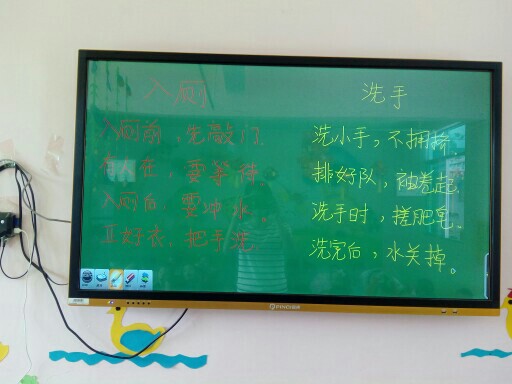 入厕
入厕前，先敲门。
有人在，要等待。
入厕后，要冲水。
正好衣，把手洗。
洗手
洗小手，不拥挤
排好队，袖卷起。
洗手时，搓肥皂。
洗完后，水关掉。